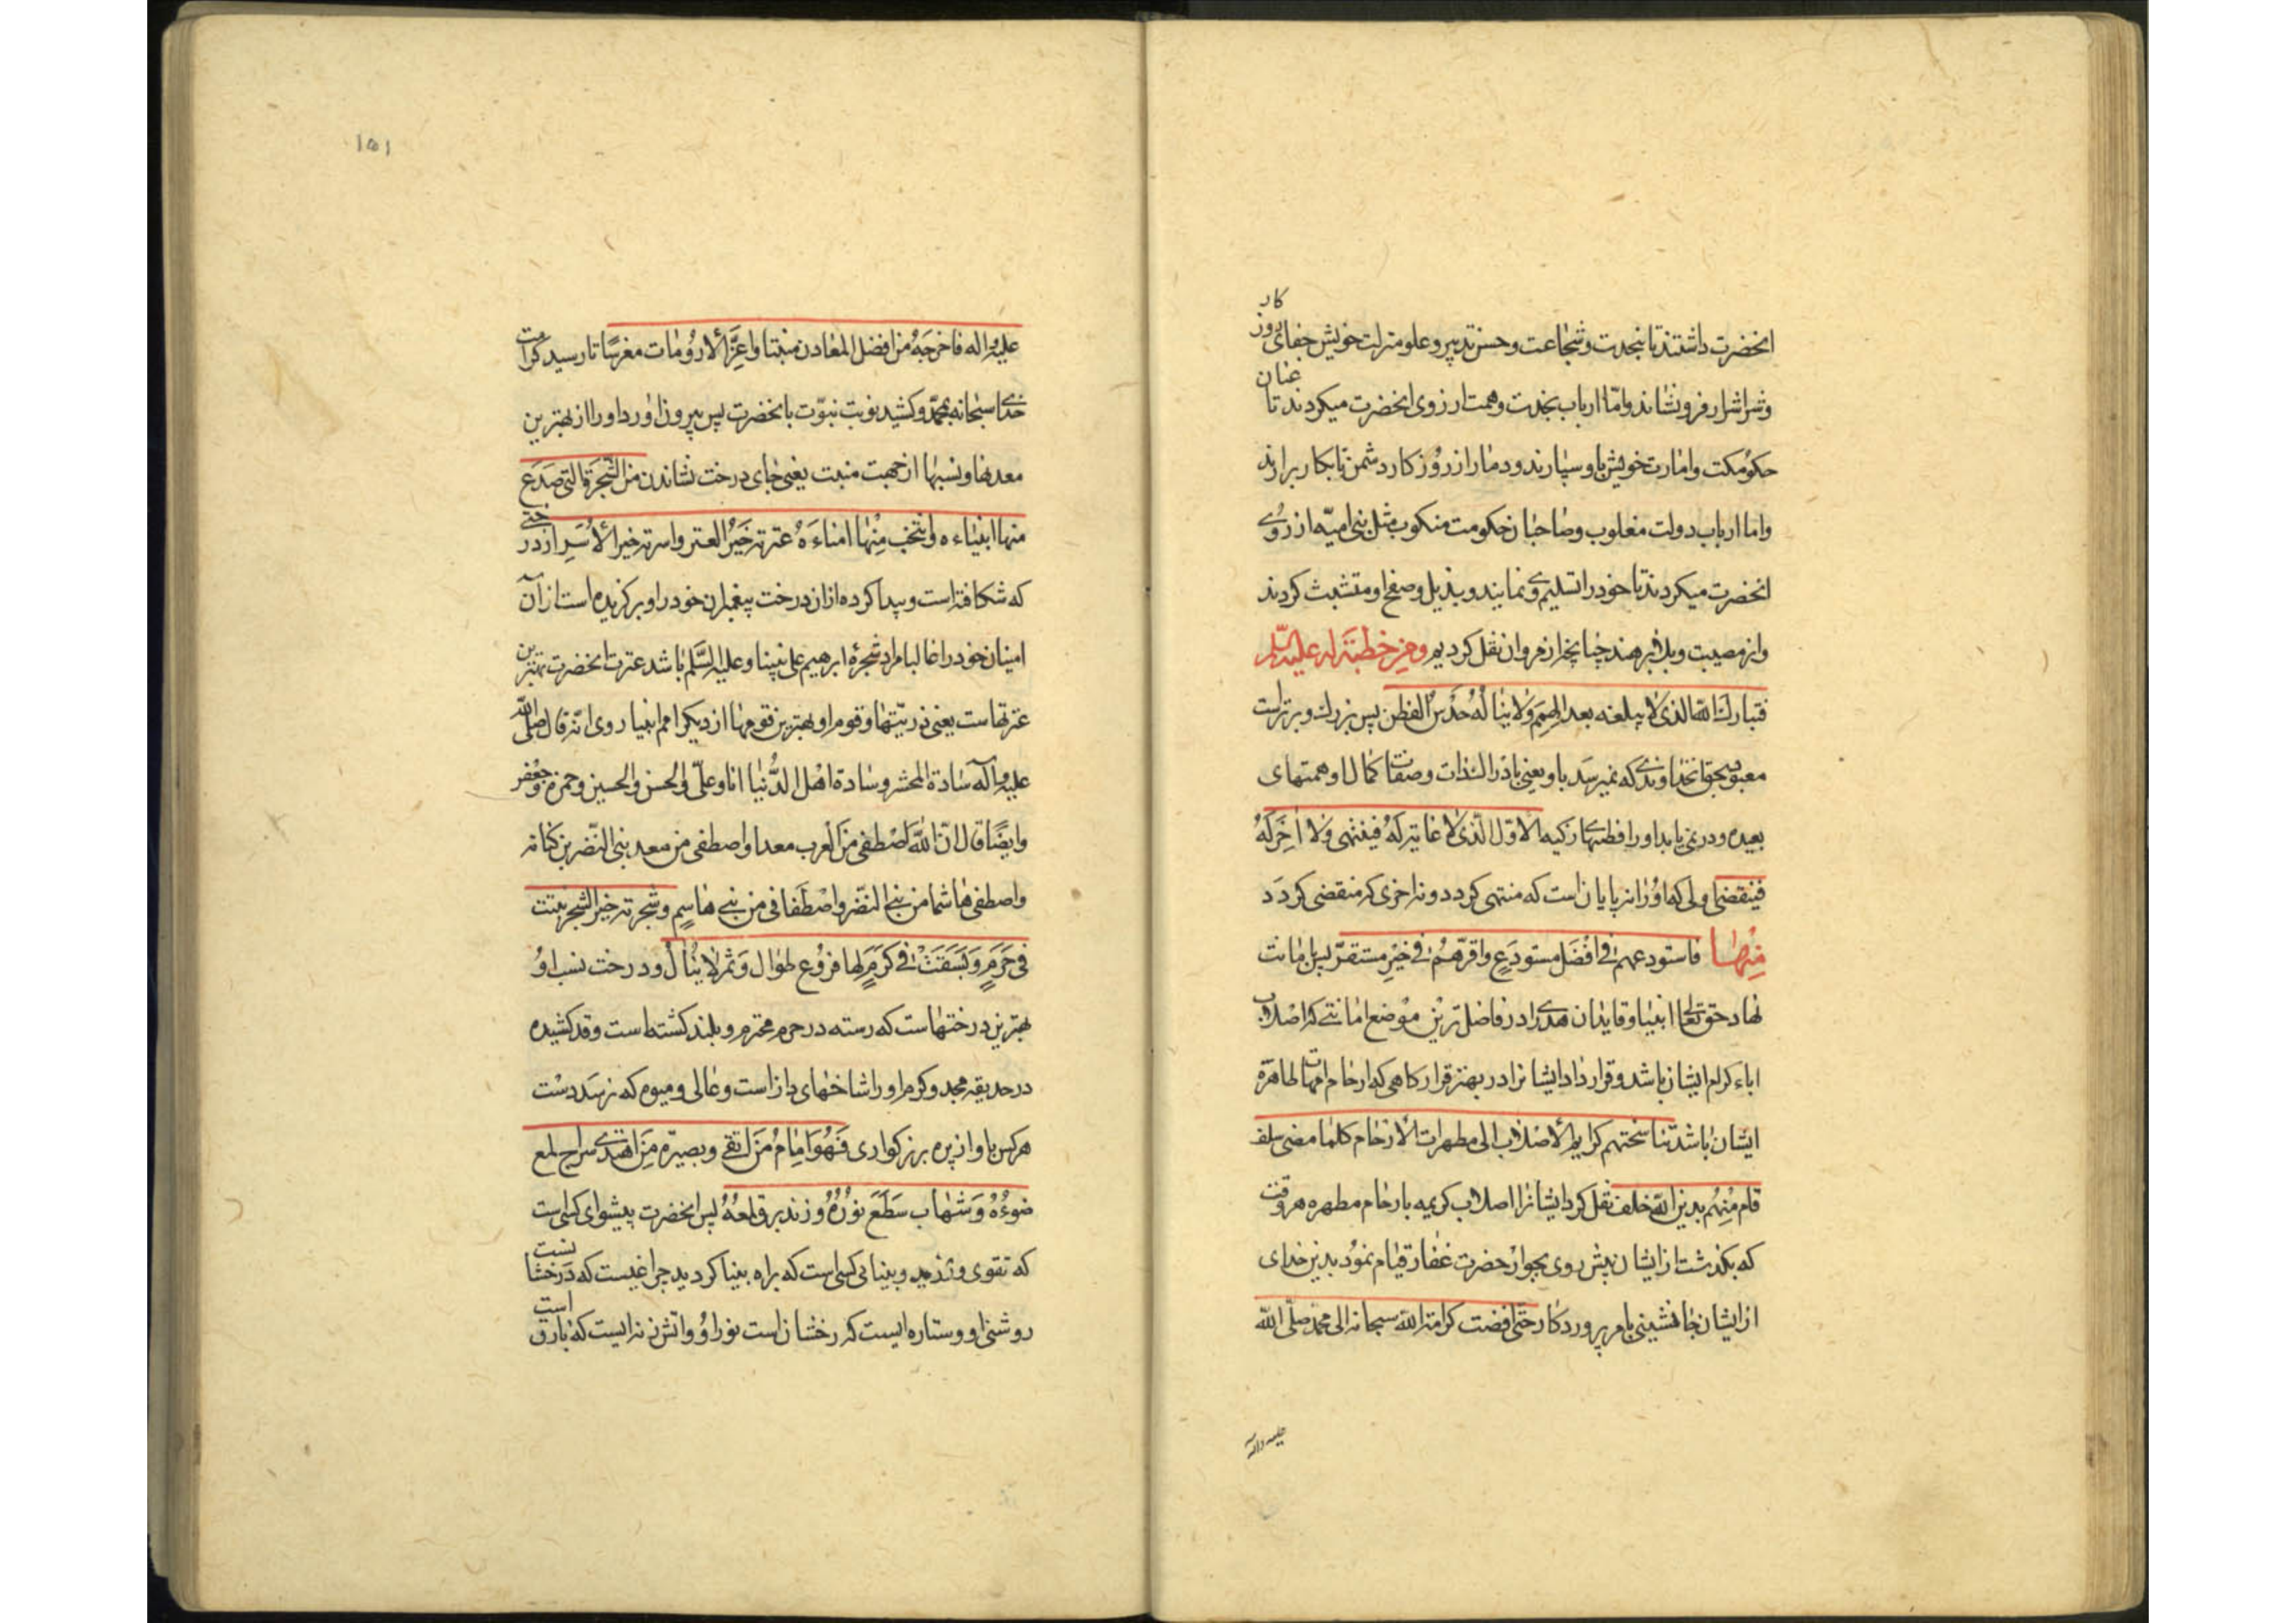 انحضرت داشتند تا بنجدت و شجاعت و حسن تدبیر و علو منزلت خویش جفای روز کار
و شر اشرار فرو نشاند و امّا ارباب نجدت و همت ارزوی انحضرت میکردند تا عنان
حکومت و امارت خویش باو سپارند و دمار از روز کار دشمن نابکار برارند
و اما ارباب دولت مغلوب و صاحبان حکومت منکوب مثل بنی امیّه ارزوی
انحضرت میکردند تا خود را تسلیم وی نمایند و بذیل و صفح او متشبث کردند
و از مصیبت و بلا برهند چنانچه از مروان نقل کردیم و من خطبة له علیه السّلم
فتبارك الله الذی لا یبلغه بعد الهمم ولا یناله حدس الفطن پس بزرك و برتر است
معبود بحق خداوندی که نمیرسد باو یعنی بادراك ذات و صفات کمال او همتهای
بعیده و در نمی یابد او را فطنتهای زکیه الاوّل الّذی لا غایة له فینتهی ولا آخر له
فینقضی اولی که او را نه پایان است که منتهی کردد و نه اخری که منقضی کردد
منها فاستودعهم فی افضل مستودع و اقرّهم فی خیر مستقرّ پس بامانت
نهاد حق تعالی انبیا و قایدان هدی را در فاضل ترین موضع امانتی که اصلاب
اباء کرام ایشان باشد و قرار داد ایشانرا در بهتر قرار کاهی که ارحام امهات طاهرة
ایشان باشد تناسختهم کرایم الاصلاب الی مطهرات الارحام کلما مضی سلف
قام منهم بدین الله خلف نقل کرد ایشانرا اصلاب کریمه بارحام مطهره هر وقت
که بکذشت از ایشان پیش روی بجوار حضرت غفار قیام نمود بدین خدای
از ایشان جانشینی بامر پروردکار حتی افضت کرامة الله سبحانه الی محمد صلّی الله
علیه واله
۱۵۱
علیه و اله فاخرجه من افضل المعادن منبتا و اعزّ الارومات مغرسًا تا رسید کرامت
خدای سبحانه بمحمّد و کشید نوبت نبوّت بانحضرت پس بیرون اورد او را از بهترین
معدنها و نسبها از جهت منبت یعنی جای درخت نشاندن من الشجرة التی صدع
منها انبیاءه و انتخب منها امناءه عترته خیر العتر و اسرته خیر الاسر از درختی
که شکافته است و پیدا کرده از ان درخت پیغمبران خود را و برکزیده است از آن
امینان خود را غالبا مراد شجرهٔ ابرهیم علی نبینا و علیه السّلم باشد عترت انحضرت بهترین
عترتهاست یعنی ذریّتها و قوم او بهترین قومها از دیکر امم انبیا روی انّه قال صلی الله
علیه و آله سادة المحشر و سادة اهل الدّنیا انا و علیّ و الحسن و الحسین و حمزه و جعفر
و ایضًا قال انّ الله اصطفی من العرب معدا و اصطفی من معد بنی النّضر بن کنانه
و اصطفی هاشما من بنی النضر و اصطفانی من بنی هاشم و شجرته خیر الشجر نبتت
فی حرم و بسقت فی کرم لها فروع طوال و ثمر لا ینال و درخت نسب او
بهترین درختهاست که رسته در حرم محترم و بلند کشته است و قد کشیده
در حدیقه مجد و کرم او را شاخهای دراز است و عالی و میوه که نرسد دست
هر کس باو از پره بزرکواری فهو امام من اتقی و بصیرة من اهتدی سراج لمع
ضوءه و شهاب سطع نوره و زند برق لمعه پس انحضرت پیشوای کسی است
که تقوی ورزید و بینایی کسی است که براه بینا کردید چراغیست که درخشانست
روشنی او و ستاره ایست که رخشان است نور او و اتش زنه ایست که بارق است